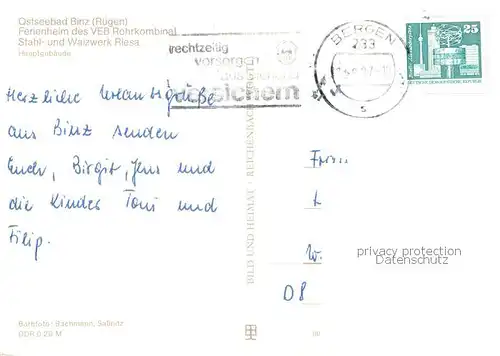 Ostseebad Binz (Rügen)
Ferienheim des VEB Rohrkombinat
Stahl- und Walzwerk Riesa
Hauptgebäude
rechtzeitig
vorsorgen
versichern
BERGEN
233
25
Herzliche Urlaubsgrüße
aus Binz senden
Euch, Birgit, Jens und
die Kinder Toni und
Filip.
BILD UND HEIMAT REICHENBACH
privacy protection
Datenschutz
Bachmann, Saßnitz
DDR 0,20 M